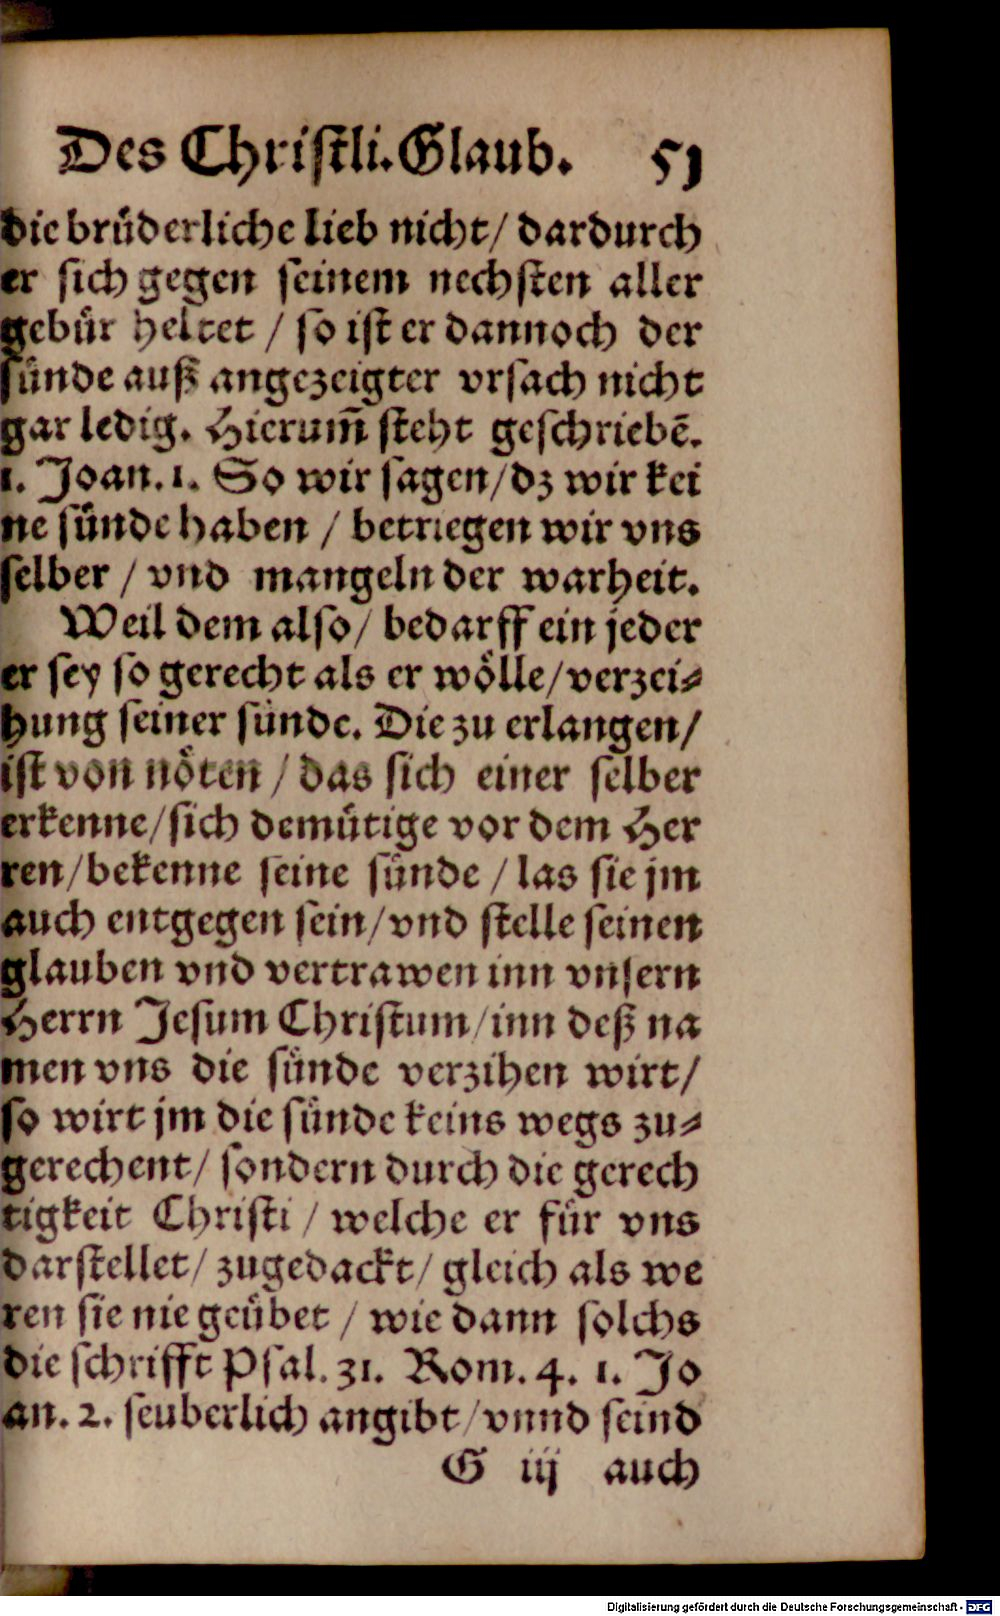 Des Christli. Glaub. 51
die brüderliche lieb nicht / dardurch
er sich gegen seinem nechsten aller
gebür heltet / so ist er dannoch der
sünde auß angezeigter vrsach nicht
gar ledig. Hierum̃ steht geschriebẽ.
1. Joan. 1. So wir sagen / dz wir kei
ne sünde haben / betriegen wir vns
selber / vnd mangeln der warheit.
Weil dem also / bedarff ein jeder
er sey so gerecht als er wölle / verzei⸗
hung seiner sünde. Die zu erlangen /
ist von nöten / das sich einer selber
erkenne / sich demütige vor dem Her
ren / bekenne seine sünde / las sie jm
auch entgegen sein / vnd stelle seinen
glauben vnd vertrawen inn vnsern
Herrn Jesum Christum / inn deß na
men vns die sünde verzihen wirt /
so wirt jm die sünde keins wegs zu⸗
gerechent / sondern durch die gerech
tigkeit Christi / welche er für vns
darstellet / zugedackt / gleich als we
ren sie nie geübet / wie dann solchs
die schrifft Psal. 31. Rom. 4. 1. Jo
an. 2. seuberlich angibt / vnnd seind
G iij auch
Digitalisierung gefördert durch die Deutsche Forschungsgemeinschaft - DFG